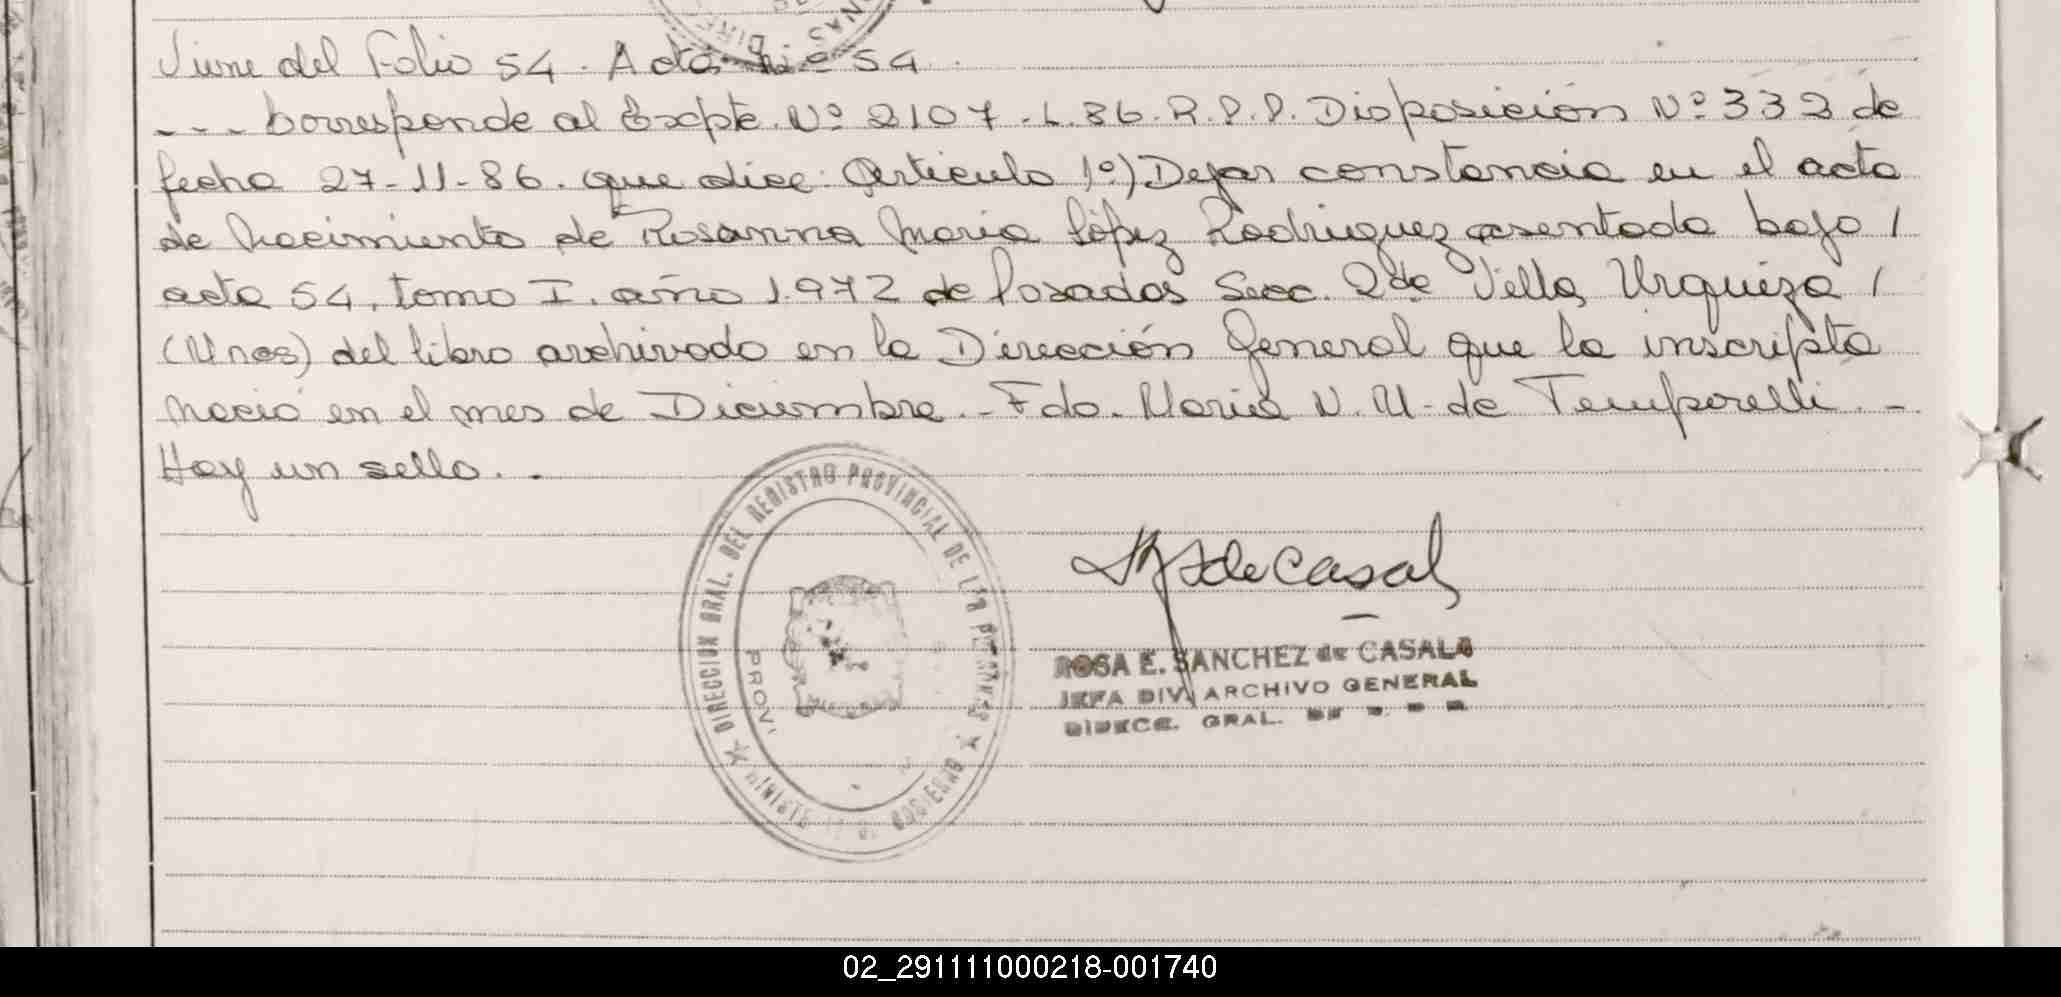 Viene del Folio 54. Acta Nº 54.
--- Corresponde al Expte. Nº 2107-L-86-R.P.P. Disposición Nº 332 de
fecha 27-11-86. que dice: Artículo 1º) Dejar constancia en el acta
de Nacimiento de Rosanna María López Rodriguez asentada bajo /
acta 54, tomo I. año 1.972 de Posadas Secc. 2da Villa Urquiza /
(Mnes) del libro archivado en la Dirección General que la inscripta
nació en el mes de Diciembre.- Fdo. María N. M. de Temporelli.-
Hay un sello.-
DIRECCION GRAL. DEL REGISTRO PROVINCIAL DE LAS PERSONAS
GOBIERNO
PROVI
de Casal
ROSA E. SANCHEZ de CASALS
JEFA DIV. ARCHIVO GENERAL
DIRECC. GRAL.
02_291111000218-001740